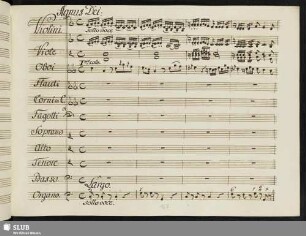 Agnus Dei.
Violini
sotto voce
Viole
Oboi
Flauti
Corni in C
Fagotti
Soprano
Alto
Tenore
Basso
Largo.
Organo.
sotto voce.
SLUB